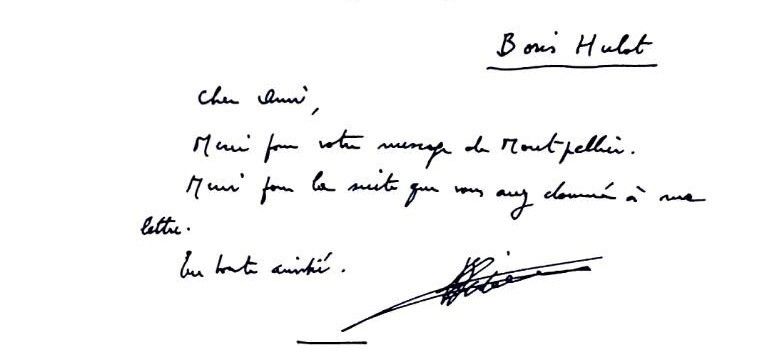 Boris Hulot
Cher Ami,
Merci pour votre message de Montpellier.
Merci pour la suite que vous avez donnée à ma
lettre.
En toute amitié.